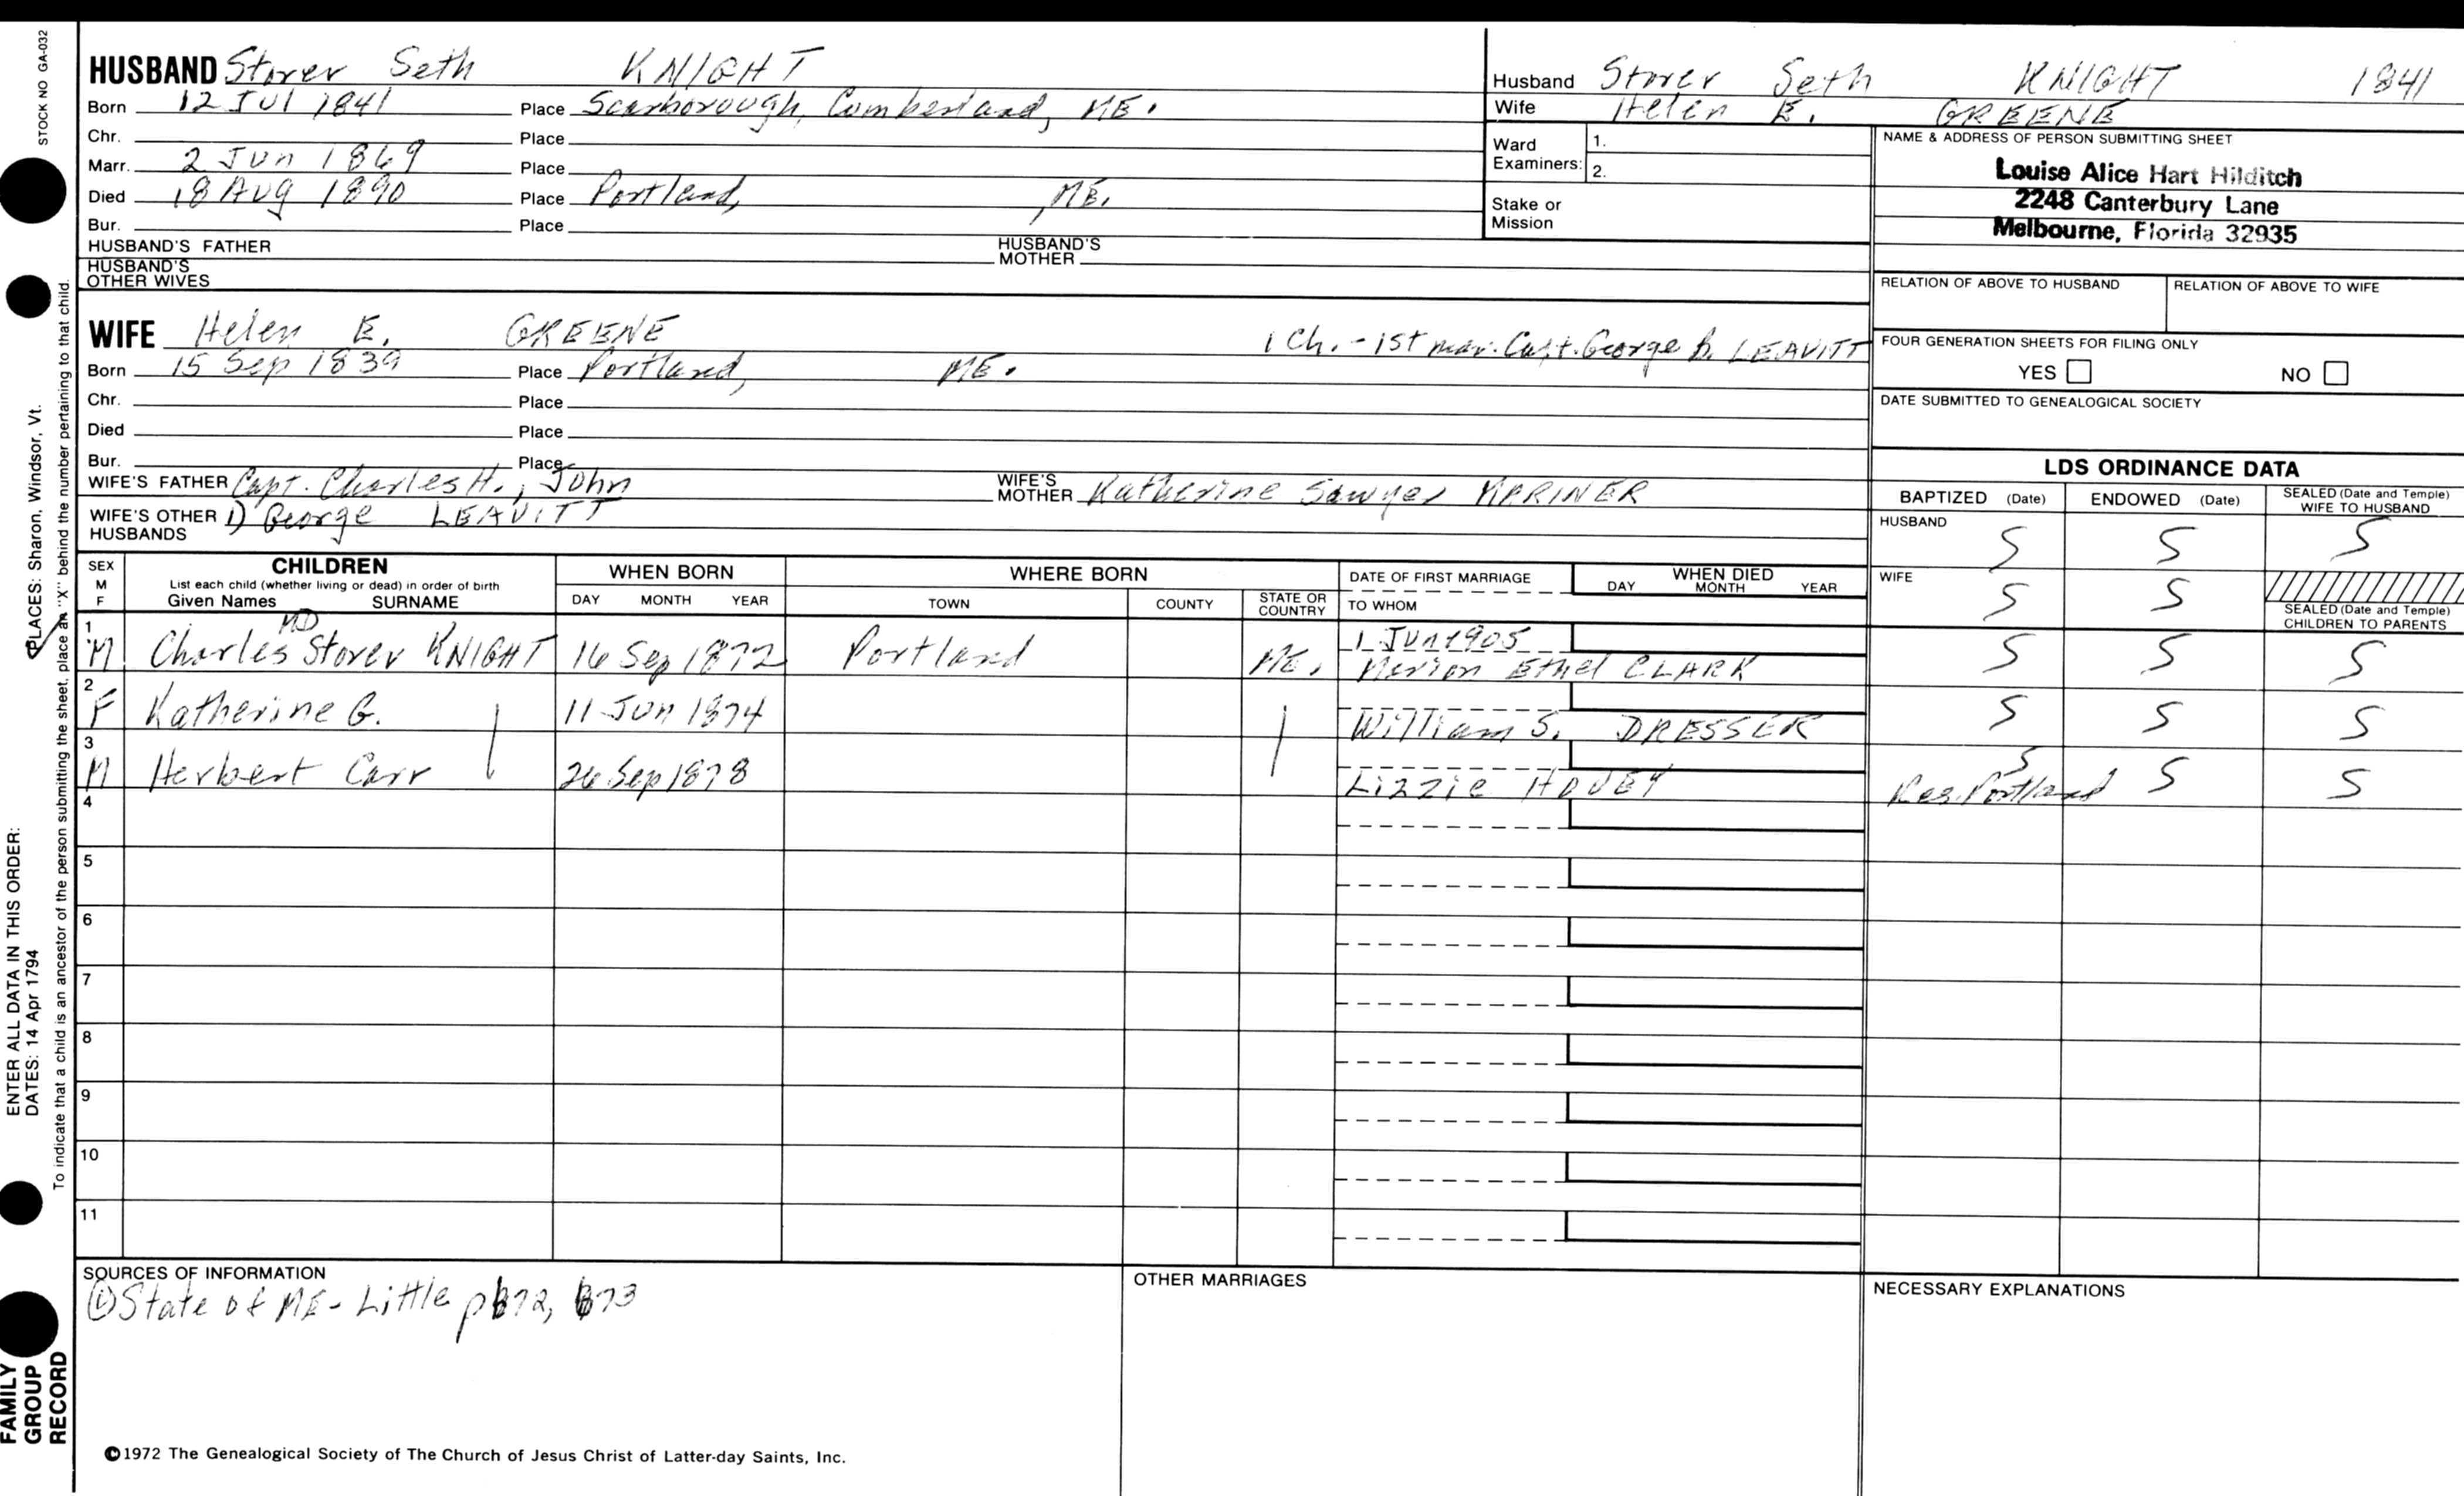 STOCK NO GA-032
HUSBAND Storer Seth KNIGHT
Born 12 Jul 1841 Place Scarborough, Cumberland, ME.
Chr. Place
Marr. 2 Jun 1869 Place
Died 18 Aug 1890 Place Portland, ME.
Bur. Place
HUSBAND'S FATHER HUSBAND'S MOTHER
HUSBAND'S OTHER WIVES
Husband Storer Seth KNIGHT 1841
Wife Helen E. GREENE
Ward Examiners: 1.
2.
Stake or Mission
NAME & ADDRESS OF PERSON SUBMITTING SHEET
Louise Alice Hart Hilditch
2248 Canterbury Lane
Melbourne, Florida 32935
RELATION OF ABOVE TO HUSBAND RELATION OF ABOVE TO WIFE
FOUR GENERATION SHEETS FOR FILING ONLY
YES NO
DATE SUBMITTED TO GENEALOGICAL SOCIETY
WIFE Helen E. GREENE 1 Ch. - 1st mar. Capt. George B. LEAVITT
Born 15 Sep 1839 Place Portland, ME.
Chr. Place
Died Place
Bur. Place
WIFE'S FATHER Capt. Charles H., John WIFE'S MOTHER Katherine Sawyer MARINER
WIFE'S OTHER HUSBANDS 1) George LEAVITT
LDS ORDINANCE DATA
BAPTIZED (Date) ENDOWED (Date) SEALED (Date and Temple) WIFE TO HUSBAND
HUSBAND S S S
WIFE S S
SEALED (Date and Temple) CHILDREN TO PARENTS
SEX M F
CHILDREN
List each child (whether living or dead) in order of birth
Given Names SURNAME
WHEN BORN
DAY MONTH YEAR
WHERE BORN
TOWN COUNTY STATE OR COUNTRY
DATE OF FIRST MARRIAGE
TO WHOM
WHEN DIED
DAY MONTH YEAR
MD
1 M Charles Storer KNIGHT 16 Sep 1872 Portland ME. 1 Jun 1905 Marion Ethel CLARK S S S
2 F Katherine G. 11 Jun 1874 William S. DRESSER S S S
3 M Herbert Carr 26 Sep 1878 Lizzie HOVEY S S S
Res. Portland
4
5
6
7
8
9
10
11
SOURCES OF INFORMATION
① State of ME - Little p672, 673
OTHER MARRIAGES
NECESSARY EXPLANATIONS
©1972 The Genealogical Society of The Church of Jesus Christ of Latter-day Saints, Inc.
FAMILY GROUP RECORD
ENTER ALL DATA IN THIS ORDER:
DATES: 14 Apr 1794
PLACES: Sharon, Windsor, Vt.
To indicate that a child is an ancestor of the person submitting the sheet, place an "X" behind the number pertaining to that child.